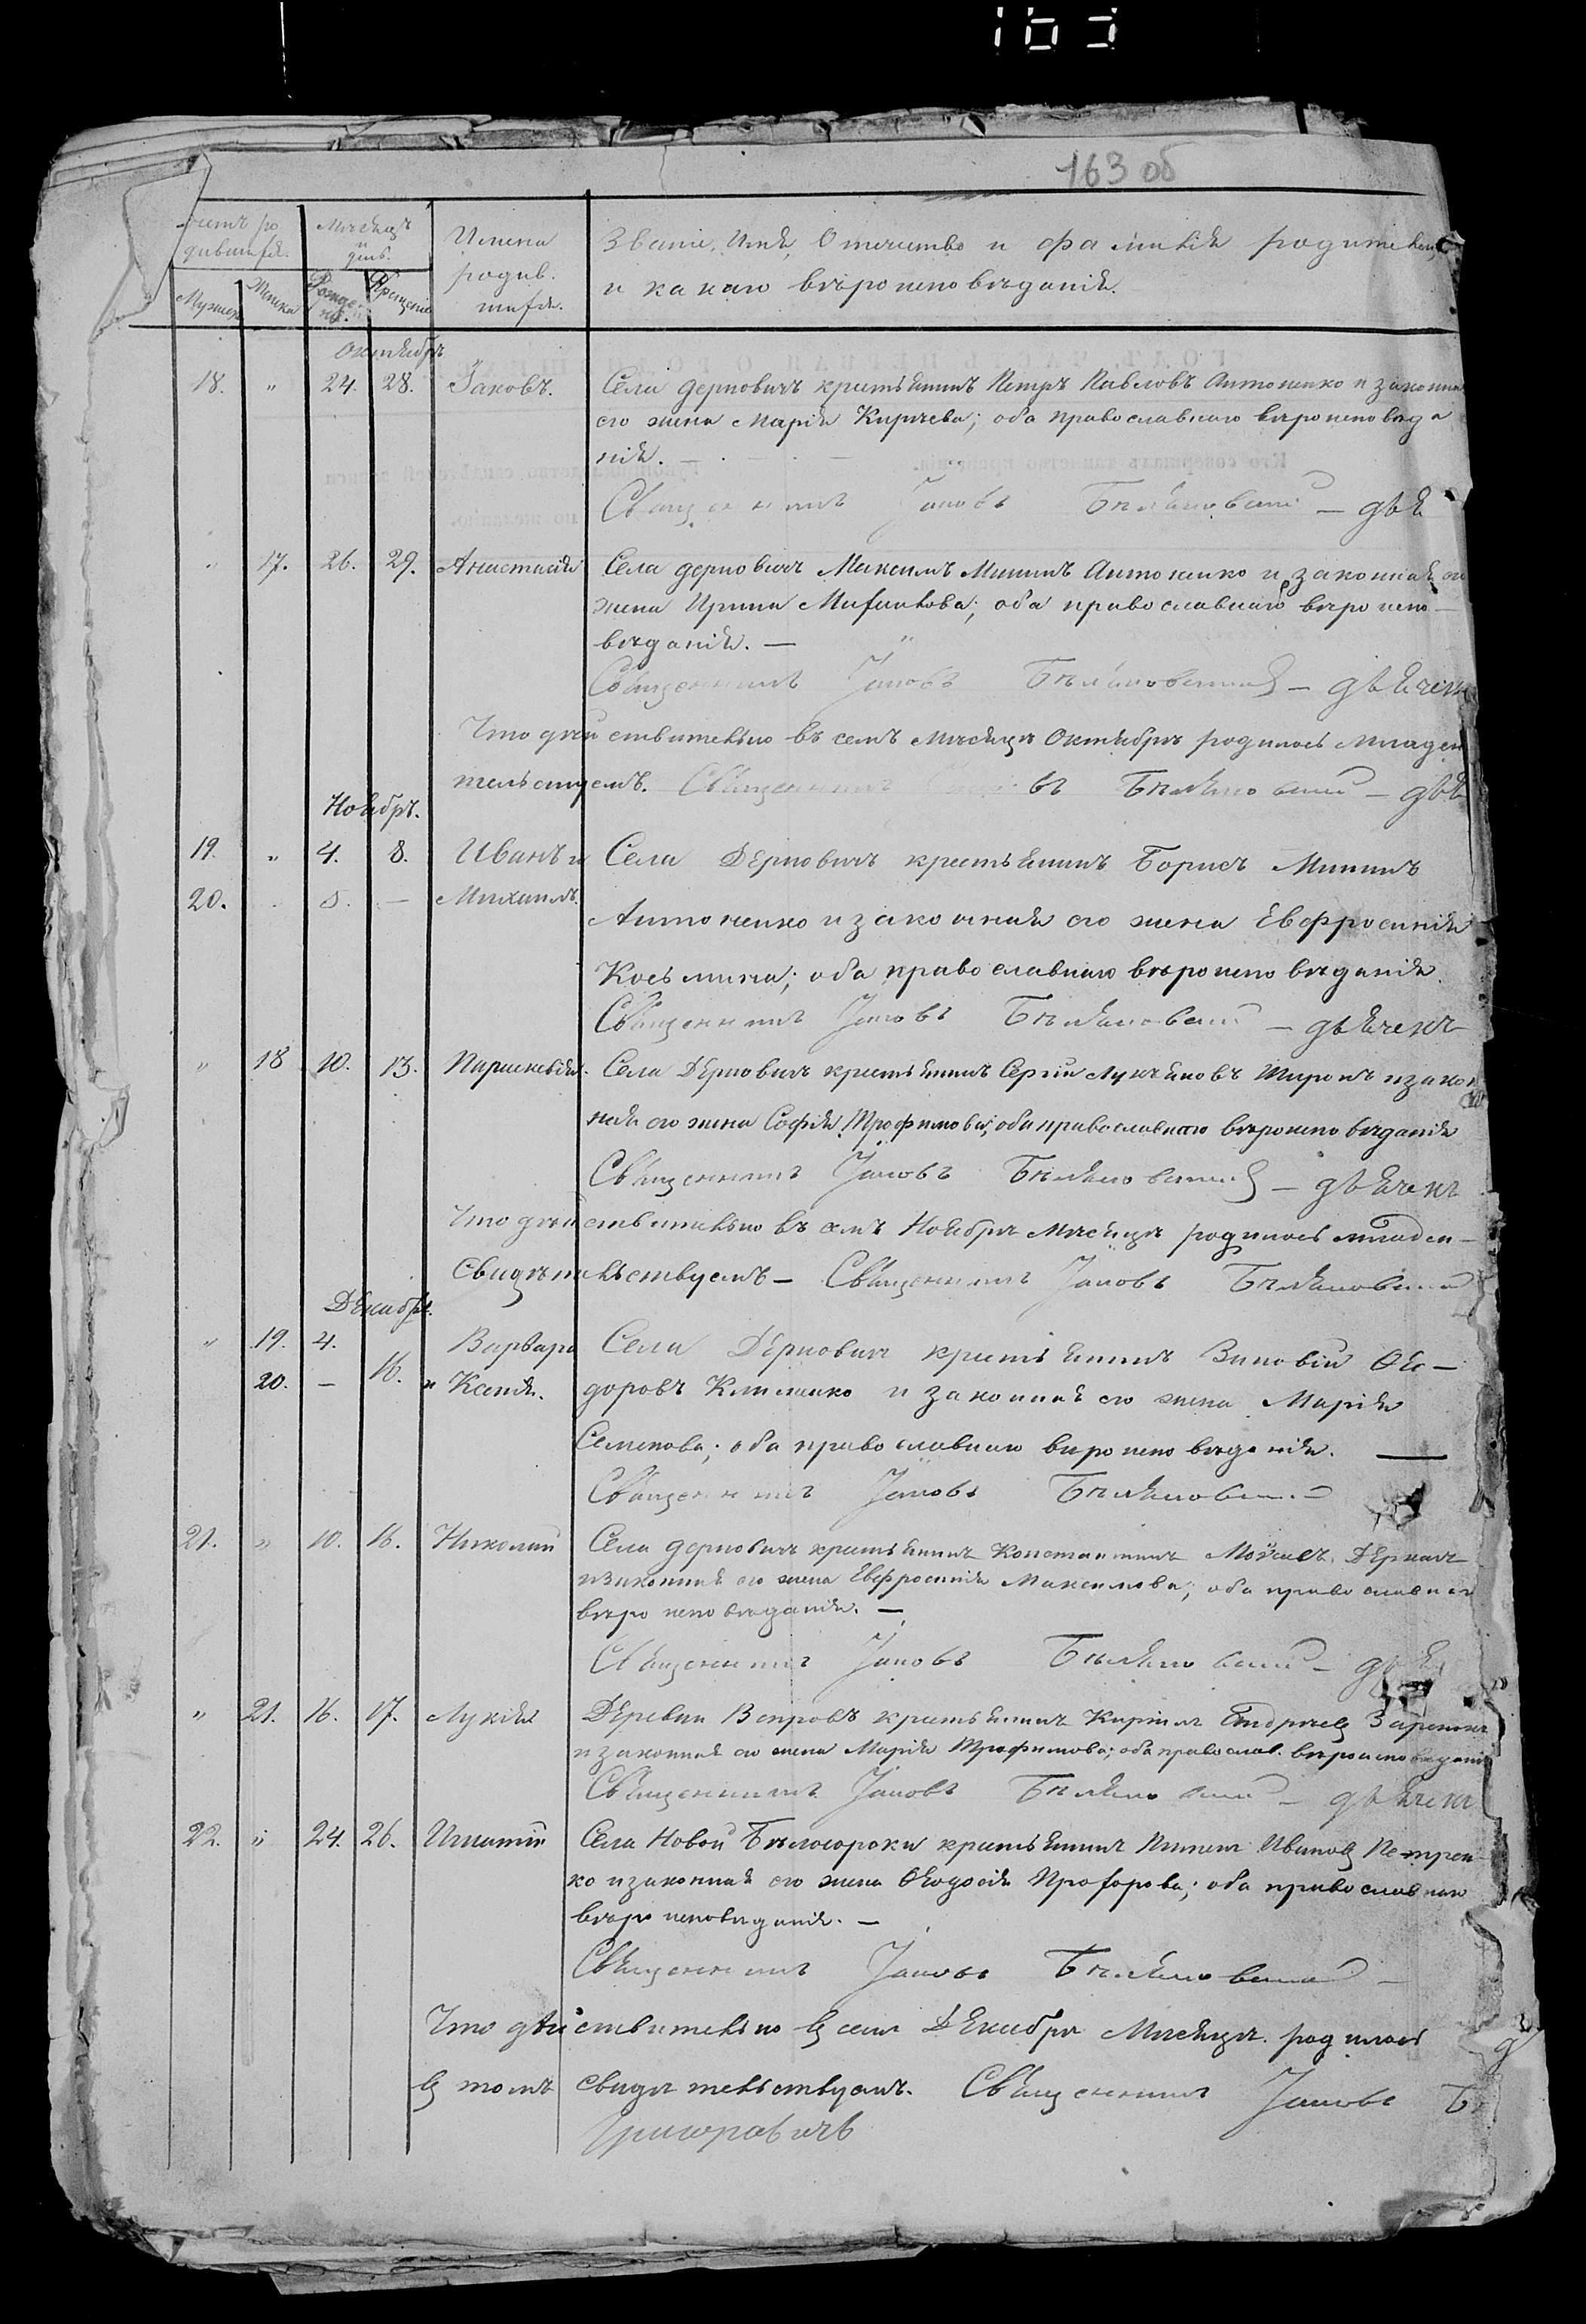 163 об
Счетъ ро
дившихся.
Мѣсяцъ
и
день.
Имена
родив.
шихся.
Званіе, Имя, Отечество и фамилія родителей,
и какого вѣроисповѣданія.
Мужеск
Женска
Рожде-
нія.
Крещенія
Октябрь
18. " 24. 28. Іаковъ. Села Дерновичъ крестьянинъ Петръ Павловъ Антоненко и законна
его жена Марія Кирѣева; оба православнаго вѣроисповѣда
нія. —
Священникъ Іаковъ Бѣляновскій — дья
" 17. 26. 29. Анастасія Села Дерновичъ Максимъ Мининъ Антоненко и законная его
жена Ирина Михайлова; оба православнаго вѣроиспо—
вѣданія. —
Священникъ Іаковъ Бѣляновскій — дьячекъ
Что дѣйствительно въ семъ мѣсяцѣ Октябрѣ родилось младен
тельствуемъ. Священникъ Іаковъ Бѣляновскій — дья
Ноябрь.
19. " 4. 8. Иванъ и Села Дерновичъ крестьянинъ Борисъ Мининъ
20. . 5. — Михаилъ.
Антоненко и законная его жена Евфросинія
Косьмина; оба православнаго вѣроисповѣданія.
Священникъ Іаковъ Бѣляновскій — дьячекъ
" 18 10. 13. Параскевія. Села Дерновичъ крестьянинъ Сергій Лукьяновъ и закон
ная его жена Софія Трофимова; оба православнаго вѣроисповѣданія
Священникъ Іаковъ Бѣляновскій — дьячекъ
Что дѣйствительно въ семъ Ноябрѣ мѣсяцѣ родилось младен—
свидѣтельствуемъ — Священникъ Іаковъ Бѣляновскій
Декабрь.
" 19. 4. Варвара Села Дерновичъ крестьянинъ Зиновій Ѳео—
20. — 16. и Ксенія. доровъ Клименко и законная его жена Марія
Семенова; оба православнаго вѣроисповѣданія. —
Священникъ Іаковъ Бѣляновскій
21. " 10. 16. Николай Села Дерновичъ крестьянинъ Константинъ Моѵсеевъ Деркачъ
и законная его жена Евфросинія Максимова; оба православнаго
вѣроисповѣданія. —
Священникъ Іаковъ Бѣляновскій — дья
" 21. 16. 17. Лукія Деревни Вепровъ крестьянинъ Кирилъ Андреевъ
и законная его жена Марія Трофимова; оба православ. вѣроисповѣданія
Священникъ Іаковъ Бѣляновскій — дьячекъ
22. " 24. 26. Игнатій Села Новой Бѣлосороки крестьянинъ Пименъ Ивановъ Петрен
ко и законная его жена Ѳеодосія Прохорова; оба православнаго
вѣроисповѣданія. —
Священникъ Іаковъ Бѣляновскій —
Что дѣйствительно въ семъ Декабрѣ мѣсяцѣ родилось
въ томъ свидѣтельствуемъ. Священникъ Іаковъ Б
Григоровичъ